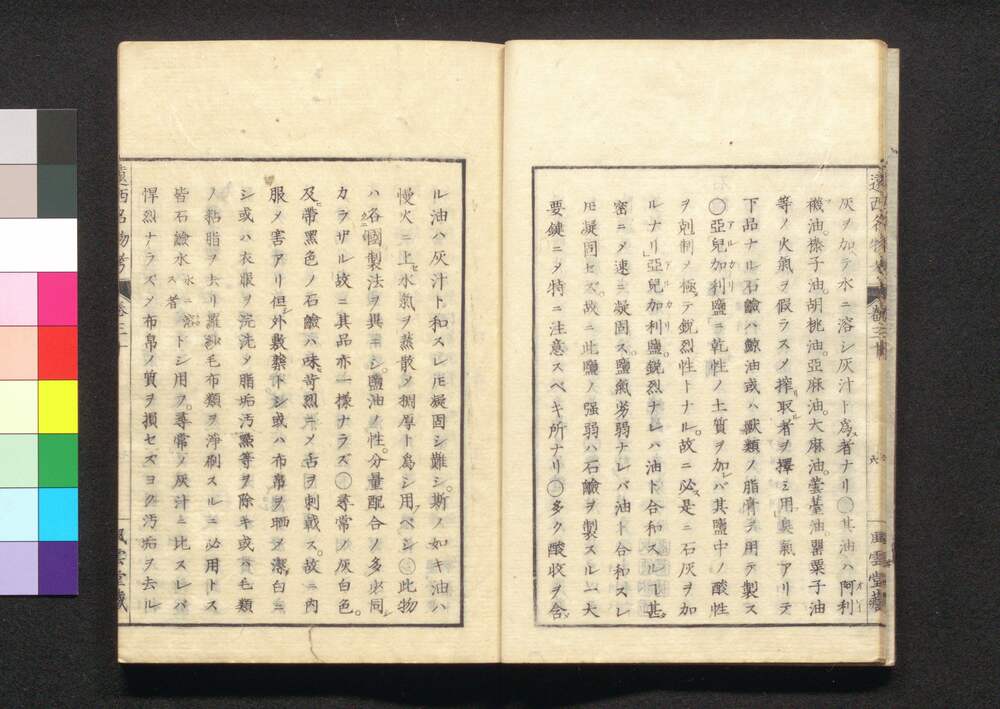 灰ヲ加テ水ニ溶シ灰汁ト爲者ナリ○其油ハ阿利
襪油。榛子油。胡桃油。亞麻油。大麻油。蕓薹油。罌粟子油
等ノ火氣ヲ假ラスメ搾取者ヲ擇ミ用臭氣アリテ
下品ナル石鹼ハ鯨油或ハ獸類ノ脂膏ヲ用テ製ス
○亞兒加利鹽ニ乾性ノ土質ヲ加バ其鹽中ノ酸性
ヲ剋制メ極テ銳烈性トナル。故ニ必是ニ石灰ヲ加
ルナリ亞兒加利鹽銳烈ナレハ油ト合和スルヿ甚
密ニメ速ニ凝固ス。鹽氣劣弱ナレバ油ト合和スレ
𪜈凝固セズ。故ニ此鹽ノ强弱ハ石鹼ヲ製スルノ大
要鍵ニメ特ニ注意スベキ所ナリ○多ク酸收ヲ含
遠西名物考 風雲堂藏
六
ル油ハ灰汁ト和スレ𪜈凝固シ難シ。斯ノ如キ油ハ
慢火ニ上セ水氣ヲ蒸散メ稠厚ト爲シ用ベシ○此物
ハ各國製法ヲ異ニシ。鹽油ノ性。分量配合ノ多少同
カラザル故ニ其品亦一樣ナラズ○尋常ノ灰白色。
及帶黑色ノ石鹼ハ味苛烈ニメ舌ヲ刺戟ス。故ニ内
服メ害アリ但外敷藥トシ或ハ布帛ヲ晒メ潔白ニ
シ或ハ衣服ヲ浣洗メ脂垢汚點等ヲ除キ或ハ毛類
ノ黏脂ヲ去リ羅紗毛布類ヲ淨刷スルニ必用トス
皆石鹼水水ニ溶ス者トシ用フ。尋常ノ灰汁ニ比スレバ
悍烈ナラズメ布帛ノ質ヲ損セズヨク汚垢ヲ去ル
遠西名物考 風雲堂藏